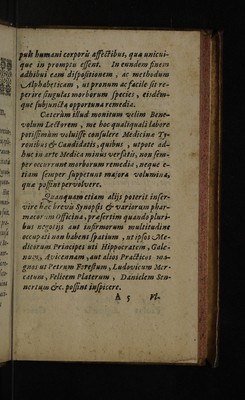 pulè humani corporis affectibus, quæ unicui-
que in promptu essent. In eundem finem
adhibui eam dispositionem, ac methodum
Alphabeticam, ut pronum ac facile sit re-
perire singulas morborum species, eisdém-
que subjuncta opportuna remedia.
Cæterùm illud monitum velim Bene-
volum Lectorem, me hoc qualiquali labore
potissimùm voluisse consulere Medicinæ Ty-
ronibus & Candidatis, quibus, utpote ad-
huc in arte Medica minus versatis, non sem-
per occurrunt morborum remedia, neque e-
tiam semper suppetunt majora volumina,
quæ possint pervolvere.
Quanquam etiam aliis poterit inser-
vire hæc brevis Synopsis & variorum phar-
macorum Officina, præsertim quando pluri-
bus negotiis aut infirmorum multitudine
occupati non habent spatium, ut ipsos Me-
dicorum Principes uti Hippocratem, Gale-
num, Avicennam, aut alios Practicos ma-
gnos ut Petrum Forestum, Ludovicum Mer-
catum, Felicem Platerum, Danielem Sen-
nertum &c. possint inspicere.
A 5 VI-